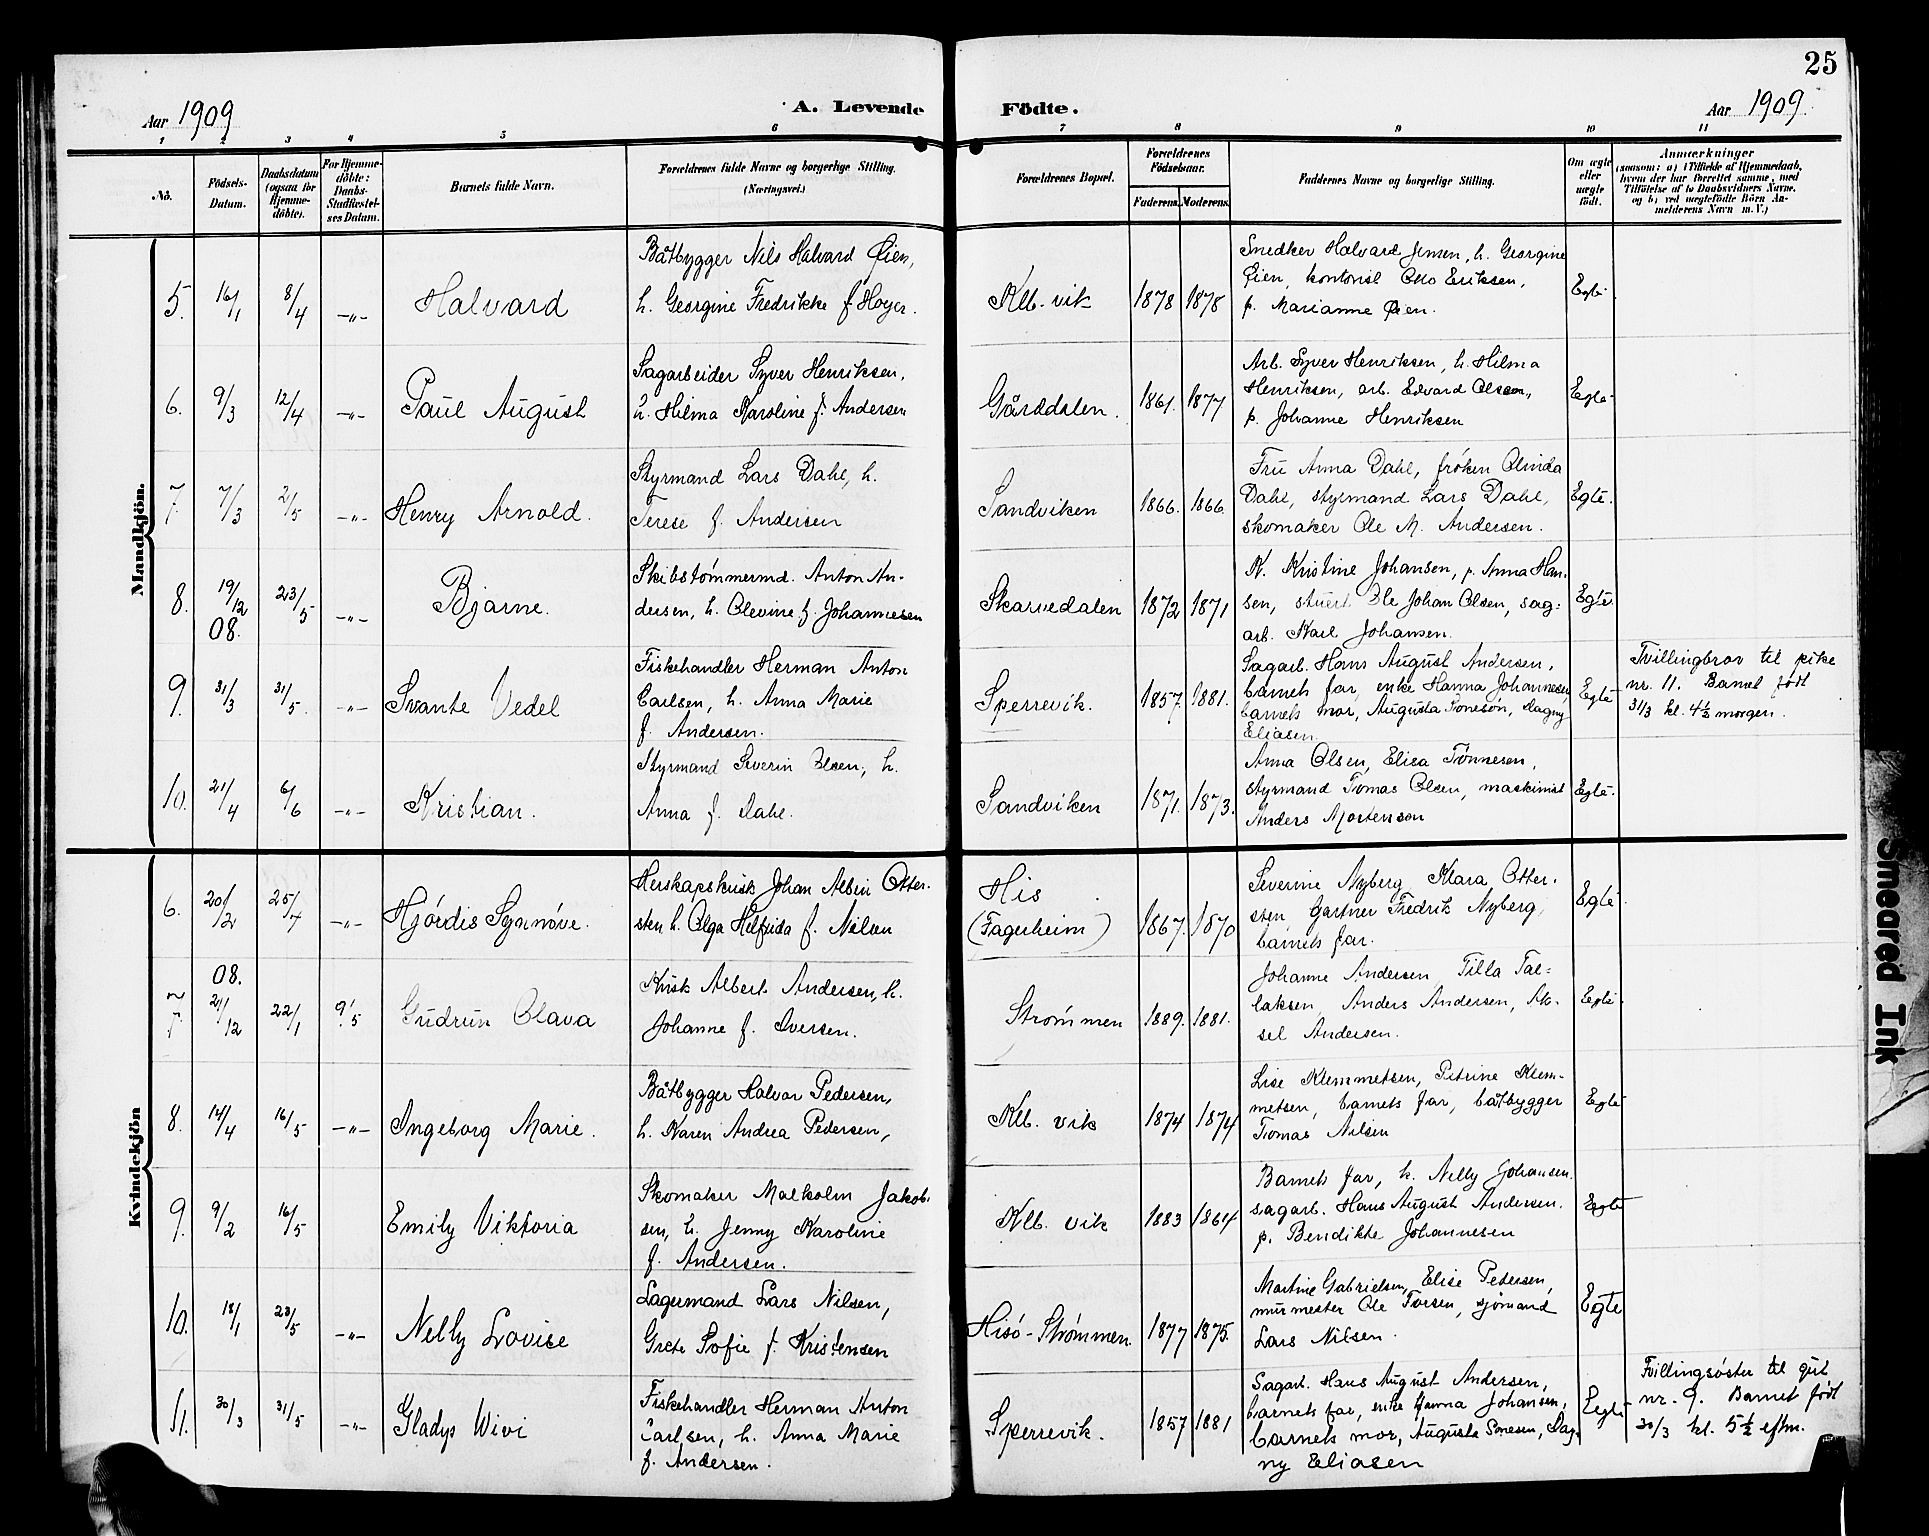 25
Aar 1909
A. Levende
Födte.
Aar 1909.
1 2 3 4 5 6 7 8 9 10 11
No.
Födsels-
Datum.
Daabsdatum
(ogsaa for
Hjemme-
döbte).
For Hjemme-
döbte:
Daabs-
Stadfæstel-
ses Datum.
Barnets fulde Navn.
Forældrenes fulde Navne og borgerlige Stilling.
(Næringsvei.)
Forældrenes Bopæl.
Forældrenes
Födselsaar.
Faderens. Moderens.
Faddernes Navne og borgerlige Stilling.
Om ægte
eller
uægte
födt.
Anmærkninger
(saasom: a) i Tilfælde af Hjemmedaab,
hvem der har forrettet samme, med
Tilföielse af to Daabsvidners Navne,
og b) ved uægtefödte Börn An-
melderens Navn m. V.)
Mandkjön.
5. 16/1 8/4 -„- Halvard
Båtbygger Nils Halvard Øien,
h. Georgine Fredrikke f. Høyer.
Klb. vik 1878 1878
Snedker Halvard Jensen, h. Georgine
Øien, kontorist Otto Eriksen,
p. Marianne Øien.
Egte.
6. 9/3 12/4 -„- Paul August
Sagarbeider Syver Henriksen,
h. Hilma Karoline f. Andersen
Gårddalen. 1861. 1877
Arb. Syver Henriksen, h. Hilma
Henriksen, arb. Edvard Olsen,
p. Johanne Henriksen
Egte.
7. 7/3 2/5 -„- Henry Arnold.
Styrmand Lars Dahl, h.
Terese f. Andersen
Sandviken 1866. 1866.
Fru Anna Dahl, frøken Olvida
Dahl, styrmand Lars Dahl,
skomaker Ole M. Andersen.
Egte.
8. 19/12 08. 23/5 -„- Bjarne.
Skibstømmermd. Anton An-
dersen, h. Olevine f. Johannesen
Skarvedalen 1872 1871
K. Kristine Johansen, p. Anna Han-
sen, stuert Ole Johan Olsen, sag-
arb. Karl Johansen.
Egte.
9. 31/3 31/5. -„- Svante Vedel
Fiskehandler Herman Anton
Carlsen, h. Anna Marie
f. Andersen.
Sperrevik. 1857. 1881.
Sagarb. Hans August Andersen,
barnets far, enke Hanna Johannesen,
barnets mor, Augusta Tønesøn, Dagny
Eliasen.
Egte
Tvillingbror til pike
nr. 11. Barnet født
31/3 kl. 4½ morgen.
10. 21/4 6/6 -„- Kristian.
Styrmand Severin Olsen, h.
Anna f. Dahl.
Sandviken 1871. 1873.
Anna Olsen, Elisa Tønnesen,
styrmand Tomas Olsen, maskinist
Anders Mortenson
Egte.
Kvindekjön
6. 20/2 25/7 -„- Hjørdis Synnøve.
Herskapskusk Johan Albin Otter-
sten h. Olga Helfrida f. Nilsen
His
(Fagerheim) 1867. 1870
Severine Nyberg Klara Otter-
sten, Gartner Fredrik Nyberg,
barnets far.
Egte.
7. 08. 21/12 22/1 9/5 Gudrun Olava
Kusk Albert Andersen, h.
Johanne f. Iversen.
Strømmen 1889. 1881.
Johanne Andersen Tilla Tal-
laksen, Anders Andersen, Ak-
sel Andersen.
Egte.
8. 14/4 16/5 -„- Ingeborg Marie.
Båtbygger Halvor Pedersen,
h. Karen Andrea Pedersen,
Klb. vik 1874 1874
Lise Klemmetsen, Petrine Klem-
metsen, barnets far, båtbygger
Tomas Nilsen
Egte
9. 9/2 16/5 Emily Viktoria
Skomaker Malkolm Jakob-
sen, h. Jenny Karoline
f. Andersen.
Klb. vik 1883 1864
Barnets far, k. Nelly Johansen.
sagarb. Hans August Andersen.
p. Bendikte Johannesen
Egte
10. 18/1 23/5 -„- Nelly Lovise
Lagermand Lars Nilsen,
Grete Sofie f. Kristensen
Hisø-Strømmen. 1877 1875.
Martine Gabrielsen, Elise Pedersen,
murmester Ole Torsen, sjømand
Lars Nilsen.
Egte
11. 30/3 31/5 -„- Gladys Wivi
Fiskehandler Herman Anton
Carlsen, h. Anna Marie
f. Andersen.
Sperrevik. 1857 1881
Sagarb. Hans August Andersen,
barnets far, enke Hanna Johansen,
barnets mor, Augusta Sonesen, Dag-
ny Eliasen
Egte
Tvillingsøster til gut
nr. 9. Barnet født
30/3 kl. 5½ eftm.
Smeared Ink